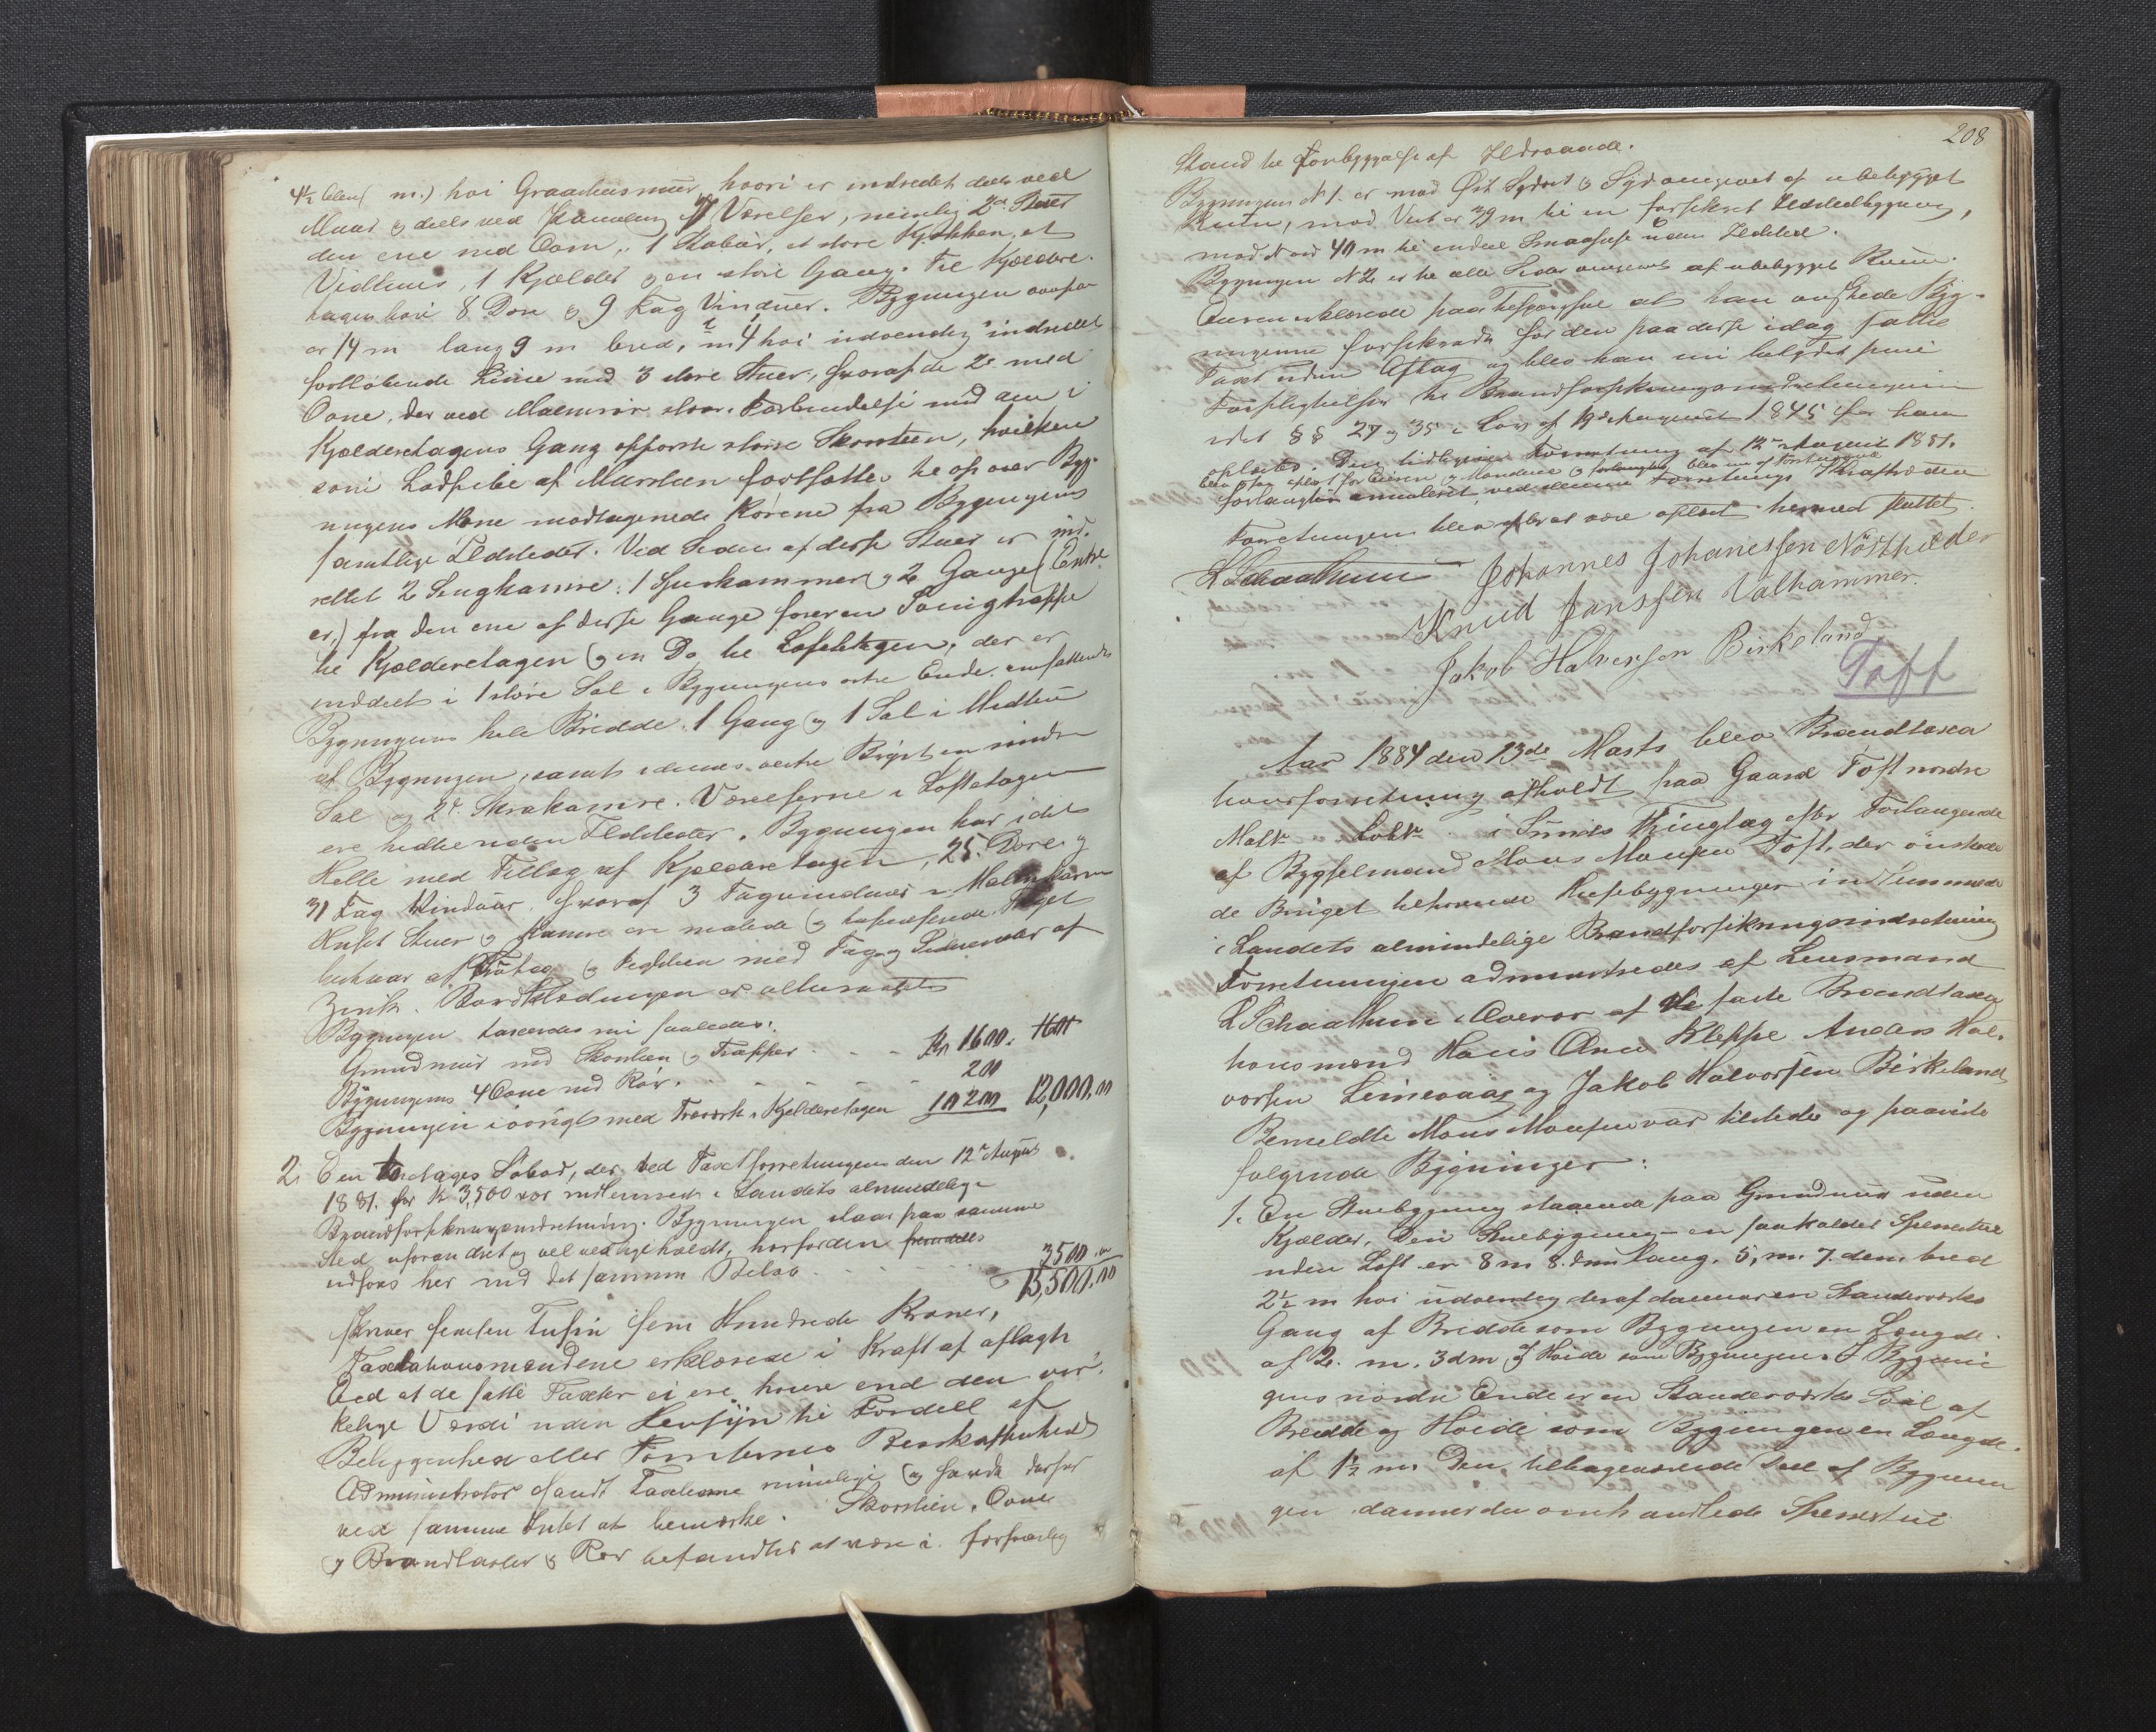 4½ m.) høi Graastensmur, hvori er indredet dels ved
Muur & dels ved Panneling Værelser, nemlig 2de Stuer
den ene med Oven, 1 Stabur, et store Kjøkken, et
Vidthuus, 1 Kjælder & en store Gang. Til Kjælderetagen
hører 8 Døre & 9 Fag Vinduer. Bygningen ovenpaa
er 14 m lang 9 m bred, 4 m høi udvendig indredet
fortløbende Linie med 3 store Stuer, hvoraf de 2de med
Ovne, der ved Malmrør staar i Forbindelse med den i
Kjælderetagens Gang opførte store Skorsteen, hvilken
som Lodpibe af Mursteen fortsættes til op over Byg-
ningens Møne modtagende Rørene fra Bygningens
samtlige Ildsteder. Ved Siden af disse Stuer er ind-
rettet 2 Sengkamre, 1 Spiskammer & 2 Gange (Entre-
er,) fra den ene af disse Gange fører en Svingtrappe
til Kjælderetagen & en Do til Loftetagen, der er
inddelt i 1 store Sal i Bygningens østre Ende omfattende
Bygningens hele Bredde, 1 Gang og 1 Sal i Midten
af Bygningen, samt i dennes vestre Bryst en mindre
Sal og 2de Skrakamre. Værelserne i Loftetagen
ere hidtil uden Ildsteder. Bygningen har i det
Hele med Tillæg af Kjælderetagen, 25 Døre &
31 Fag Vinduer, hvoraf 3 Tagvinduer i Malmkarm
Huset Stuer & Kamre ere malede & tapetserede. Taget
bestaar af Trætag & Teglsten med Tag & Siderender af
Zink. Bordklædningen er oliemalet
Bygningen taxeredes nu saaledes:
Grundmur med Skorsten & Trapper - - - Kr 1600. 1600
Bygningens 4 Ovne med Rør. - - - - - 200
Bygningen i øvrigt med Træværk i Kjelderetagen 10200 12,000,00
2. En toetages Søbod, der ved Taxtforretningen den 12te August
1881 for Kr 3,500 var indlemmet i Landets almindelige
Brandforsikringsindretning. Bygningen staar paa samme
Sted uforandret og vel vedligeholdt, hvorfor den fremdeles
udføres her med det samme Beløb - - - - 3500,00
15,500,00
skriver femten Tusin fem Hundrede Kroner,
Taxtationsmændene erklærede i Kraft af aflagte
Eed at de satte Taxter ei ere høiere end den vir-
kelige Værdi uden Hensyn til Fordell af
Beliggenhed eller Tomternes Beskaffenhed
Administrator fandt Taxterne rimelige og havde derfor
ved samme Intet at bemærke. Skorsten, Ovne
& Brandtaster & Rør befandtes at være i forsvarlig
208
Stand til Forbyggelse af Ildsvaade.
Bygningen N 1. er mod Øst Sydost & Syd omgivet af ubebygget
Ruin, mod Vest er 39 m til en forsikret Ildstedbygning,
mod Nord 40 m til endeel Smaahuse uden Ildsted.
Bygningen N 2 er til alle Sider omgivet af ubebygget Ruin.
Eieren erklærede paa Tilspørgsel at han ønskede Byg-
ningerne forsikrede for den paa disse idag satte
Taxt uden Aftag og blev han nu betydet sine
Forpligtelser til Brandforsikringsindretningen
idet §§ 27 og 35 i Lov af 19de August 1845 for ham
oplæstes. Den tidligere Forretning af 12te August 1881.
blev efter oplæst for Eieren & Mændene
forlangtes annuleret ved denne Forretnings Ikrafttræden
Forretningen blev efter at være oplæst hermed sluttet.
L Schaathuun Johannes Johanessen Nordhilder
Knud Janssen Valhammer.
Jakob Halversen Birkeland
Toft
Aar 1884 den 13de Marts blev Brandtaxa
tionsforretning afholdt paa Gaard Toft nordre
Matr. Løbr. i Sunds Thinglag efter Forlangende
af Bygselmand Mons Monsen Toft, der ønskede
de Bruget tilhørende Huusbygninger indlemmede
i Landets almindelige Brandforsikringsindretning
Forretningen administredes af Lensmand
L Schaathuun i Overvær af de faste Brandtaxa
tionsmænd Hans Olsen Kleppe Anders Hal-
vorsen Leinevaag og Jakob Halvorsen Birkeland
Bemeldte Mons Monsen var tilstede og paaviste
følgende Bygninger:
1. En Stuebygning staaende paa Grundmur uden
Kjælder. Den Stuebygning - en saakaldet Sperrestue
uden Loft er 8 m 8. dm lang. 5, m. 7. dem. bred
2½ m høi udvendig deraf danner en Standerværks
Gang af Bredde som Bygningen en Længde
af 2. m. 3 dm & Høide som Bygningen. I Bygnin
gens nordre Ende er en Standerværks Sval af
Bredde og Høide som Bygningen en Længde
af 1½ m. Den tilbageværende Deel af Bygnin
gen danner den omhandlede Sperrestue